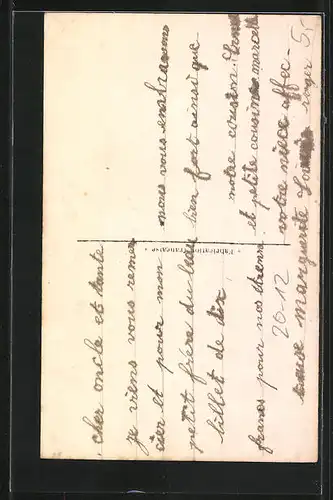 cher oncle et tante
je viens vous remer
cier et pour mon
petit frère du
billet de dix
francs pour nos étrenne
20-12
nous vous embrassons
bien fort ainsi que
notre cousin
et ptite cousine marcel
votre nièce affec-
tueuse marguerite
roger
Fabrication française